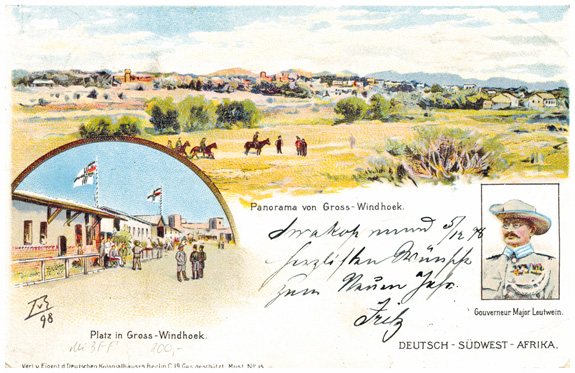 Panorama von Gross-Windhoek.
Swakopmund 5/12 98
herzlichen Wünsche
zum Neuen Jahr.
Fritz
Gouverneur Major Leutwein.
98
Platz in Gross-Windhoek.
100,-
DEUTSCH-SÜDWEST-AFRIKA.
Verl. u. Eigent. d. Deutschen Kolonialhauses Berlin C. 19 Ges. geschützt. Must. Nº 15